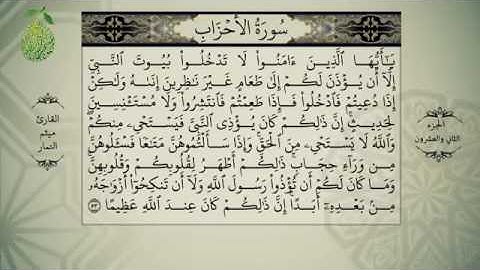 سُورَةُ الأَحْزَابِ
يَٰٓأَيُّهَا ٱلَّذِينَ ءَامَنُوا۟ لَا تَدْخُلُوا۟ بُيُوتَ ٱلنَّبِىِّ
إِلَّآ أَن يُؤْذَنَ لَكُمْ إِلَىٰ طَعَامٍ غَيْرَ نَٰظِرِينَ إِنَىٰهُ وَلَٰكِنْ
إِذَا دُعِيتُمْ فَٱدْخُلُوا۟ فَإِذَا طَعِمْتُمْ فَٱنتَشِرُوا۟ وَلَا مُسْتَـْٔنِسِينَ
لِحَدِيثٍ ۚ إِنَّ ذَٰلِكُمْ كَانَ يُؤْذِى ٱلنَّبِىَّ فَيَسْتَحْىِۦ مِنكُمْ ۖ
وَٱللَّهُ لَا يَسْتَحْىِۦ مِنَ ٱلْحَقِّ ۚ وَإِذَا سَأَلْتُمُوهُنَّ مَتَٰعًا فَسْـَٔلُوهُنَّ
مِن وَرَآءِ حِجَابٍ ۚ ذَٰلِكُمْ أَطْهَرُ لِقُلُوبِكُمْ وَقُلُوبِهِنَّ ۚ
وَمَا كَانَ لَكُمْ أَن تُؤْذُوا۟ رَسُولَ ٱللَّهِ وَلَآ أَن تَنكِحُوٓا۟ أَزْوَٰجَهُۥ
مِنۢ بَعْدِهِۦٓ أَبَدًا ۚ إِنَّ ذَٰلِكُمْ كَانَ عِندَ ٱللَّهِ عَظِيمًا ٥٣
القارئ
ميثم
التمار
الجزء
الثاني والعشرون